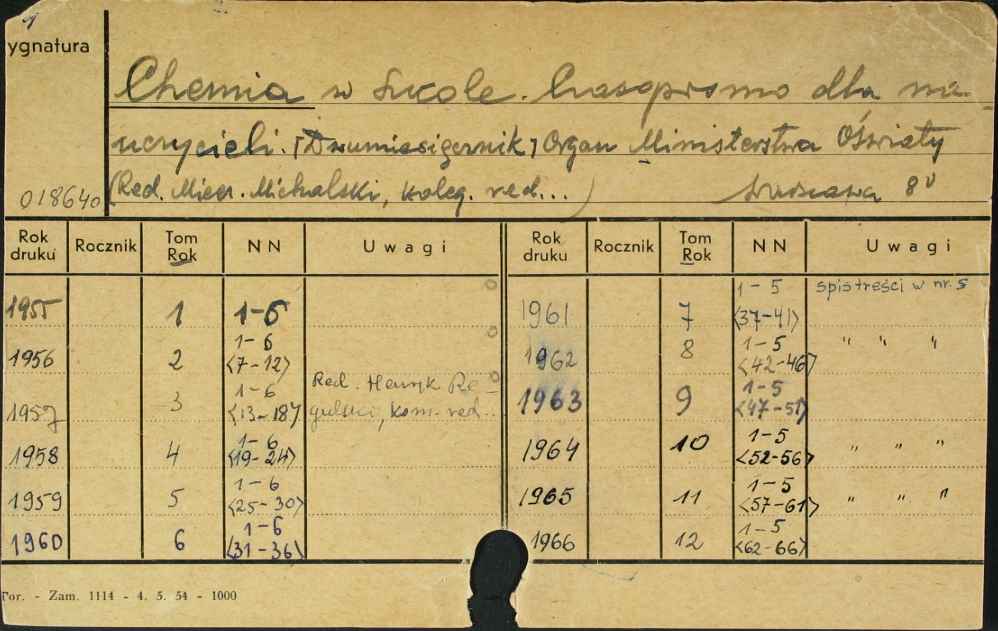 ygnatura
Chemia w szkole. Czasopismo dla na-
uczycieli. [Dwumiesięcznik] Organ Ministerstwa Oświaty
018640 (Red. Miecz. Michalski, koleg. red...) Warszawa 8°
Rok druku Rocznik Tom Rok NN Uwagi Rok druku Rocznik Tom Rok NN Uwagi
1955 1 1-6 1961 7 1-5 <37-41> spis treści w nr. 5
1956 2 1-6 <7-12> 1962 8 1-5 <42-46> " " "
1957 3 1-6 <13-18> Red. Henryk Re-
gulski, kom. red... 1963 9 1-5 <47-51>
1958 4 1-6 <19-24> 1964 10 1-5 <52-56> " " "
1959 5 1-6 <25-30> 1965 11 1-5 <57-61> " " "
1960 6 1-6 <31-36> 1966 12 1-5 <62-66>
Por. - Zam. 1114 - 4. 5. 54 - 1000